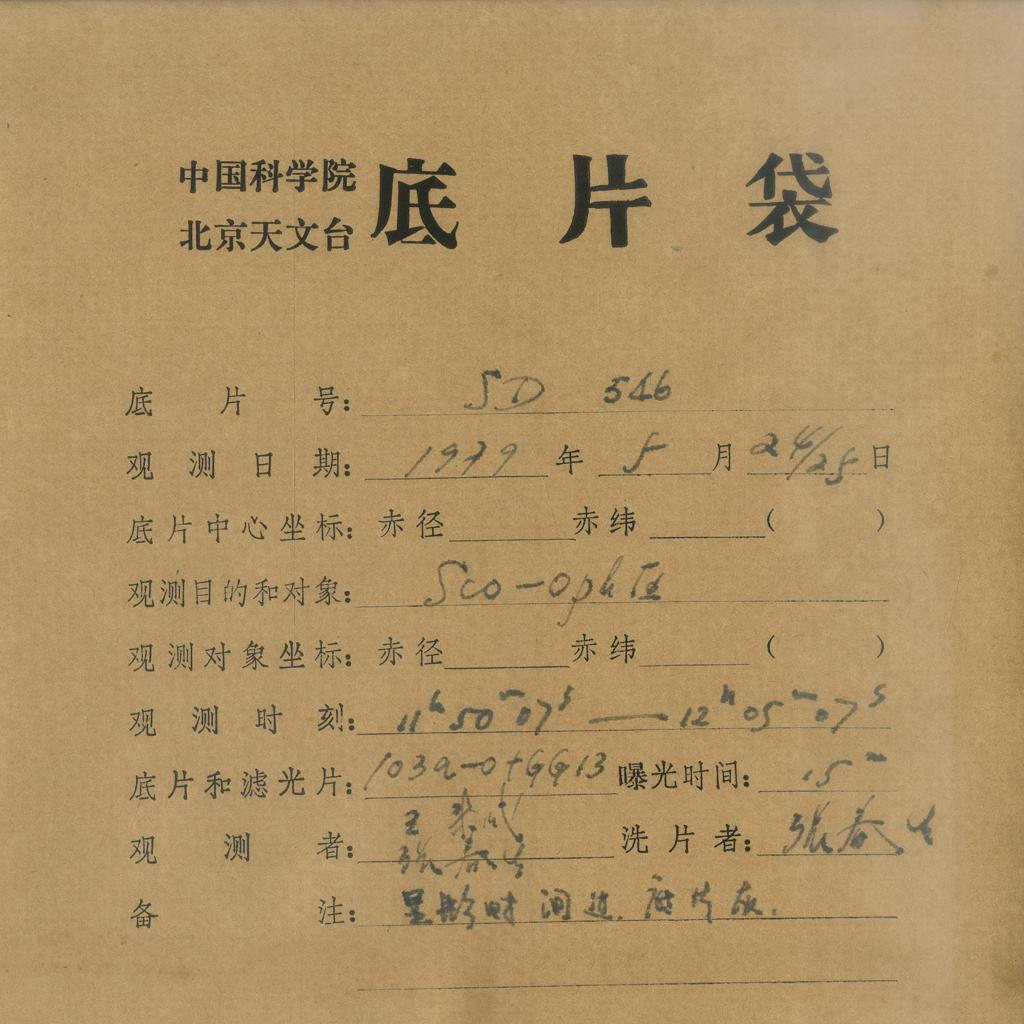 中国科学院
北京天文台
底片袋
底片号: SD 546
观测日期: 1979年 5月 24/25日
底片中心坐标: 赤径 赤纬 ( )
观测目的和对象: Sco-Oph
观测对象坐标: 赤径 赤纬 ( )
观测时刻: 11h50m07s — 12h05m07s
底片和滤光片: 103a-O+GG13 曝光时间: 15m
观测者: 王
张春生 洗片者: 张春生
备注: 时间过. 底片灰.